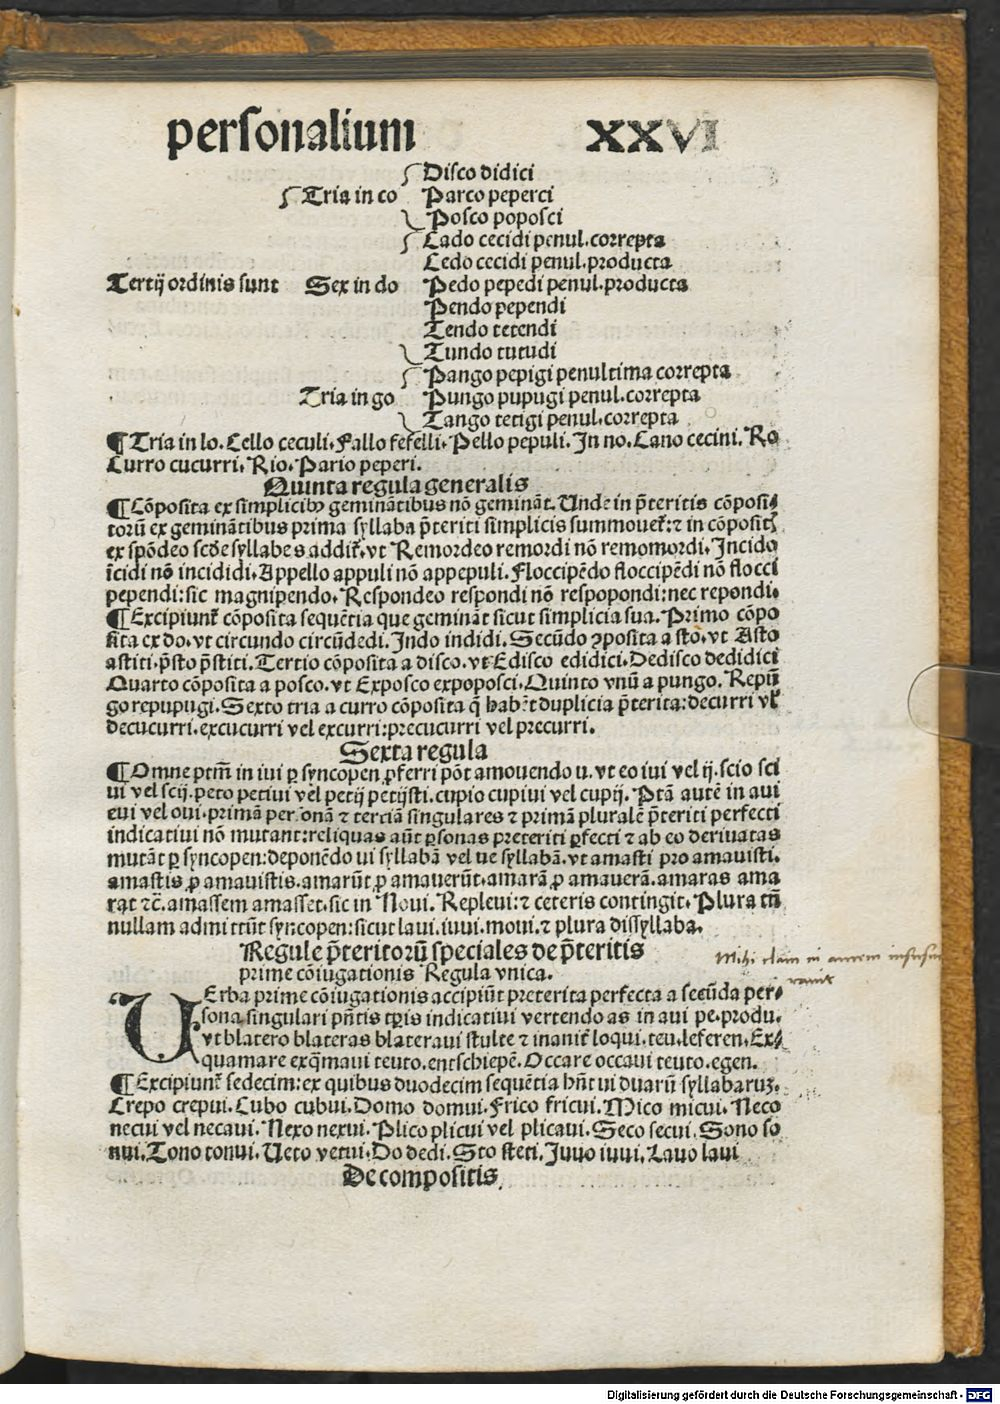 perſonalium XXVI
Diſco didici
Tria in co Parco peperci
Poſco popoſci
Cado cecidi penul.correpta
Cedo cecidi penul.producta
Tertij ordinis ſunt Sex in do Pedo pepedi penul.producta
Pendo pependi
Tendo tetendi
Tundo tutudi
Pango pepigi penultima correpta
Tria in go Pungo pupugi penul.correpta
Tango tetigi penul.correpta
¶ Tria in lo. Cello ceculi. Fallo fefelli. Pello pepuli. In no. Cano cecini. Ro
Curro cucurri. Rio. Pario peperi.
Quinta regula generalis
¶ Cõpoſita ex ſimplicibꝰ geminãtibus nõ geminãt. Unde in p̃teritis cõpoſi⸗
torũ ex geminãtibus prima ſyllaba p̃teriti ſimplicis ſummouet᷑: ⁊ in cõpoſit᷑
ex ſpõdeo ſcd̃e ſyllabe s addit᷑. vt Remordeo remordi nõ remomordi. Incido
ĩcidi nõ incididi. Appello appuli nõ appepuli. Floccipẽdo floccipẽdi nõ flocci
pependi: ſic magnipendo. Reſpondeo reſpondi nõ reſpopondi: nec repondi.
¶ Excipiunt᷑ cõpoſita ſequẽtia que geminãt ſicut ſimplicia ſua. Primo cõpo
ſita ex do. vt circundo circũdedi. Indo indidi. Secũdo ꝯpoſita a ſto. vt Aſto
aſtiti. p̃ſto p̃ſtiti. Tertio cõpoſita a diſco. vt Ediſco edidici. Dediſco dedidici
Quarto cõpoſita a poſco. vt Expoſco expopoſci. Quinto vnũ a pungo. Repũ
go repupugi. Sexto tria a curro cõpoſita q̃ habẽt duplicia p̃terita: decurri vl᷑
decucurri. excucurri vel excurri: precucurri vel precurri.
Sexta regula
¶ Omne ptm̃ in iui ꝑ ſyncopen ꝓferri põt amouendo u. vt eo iui vel ij. ſcio ſci
ui vel ſcij. peto petiui vel petij petijſti. cupio cupiui vel cupij. Ptã autẽ in aui
eui vel oui. primã perſonã ⁊ terciã ſingulares ⁊ primã pluralẽ p̃teriti perfecti
indicatiui nõ mutant: reliquas aũt ꝑſonas preteriti ꝑfecti ⁊ ab eo deriuatas
mutãt ꝑ ſyncopen: deponẽdo ui ſyllabã vel ue ſyllabã. vt amaſti pro amauiſti.
amaſtis ꝓ amauiſtis. amarũt ꝓ amauerũt. amarã ꝓ amauerã. amaras ama
rat ⁊c̃. amaſſem amaſſet. ſic in Noui. Repleui: ⁊ ceteris contingit. Plura tñ
nullam admittũt ſyncopen: ſicut laui. iuui. moui. ⁊ plura diſſyllaba.
Regule p̃teritorũ ſpeciales de p̃teritis
prime cõiugationis Regula vnica.
Mihi clam in aurem
UErba prime cõiugationis accipiũt preterita perfecta a ſecũda per⸗
ſona ſingulari pñtis tꝑis indicatiui vertendo as in aui pe. produ.
vt blatero blateras blateraui ſtulte ⁊ inanit᷑ loqui. teu. lefferen. Ex⸗
quamare exq̃maui teuto. entſchiepẽ. Occare occaui teuto. egen.
¶ Excipiunt᷑ ſedecim: ex quibus duodecim ſequẽtia hñt ui duarũ ſyllabaruꝫ.
Crepo crepui. Cubo cubui. Domo domui. Frico fricui. Mico micui. Neco
necui vel necaui. Nexo nexui. Plico plicui vel plicaui. Seco ſecui. Sono ſo
nui. Tono tonui. Veto vetui. Do dedi. Sto ſteti. Iuuo iuui. Lauo laui
De compoſitis
Digitalisierung gefördert durch die Deutsche Forschungsgemeinschaft - DFG